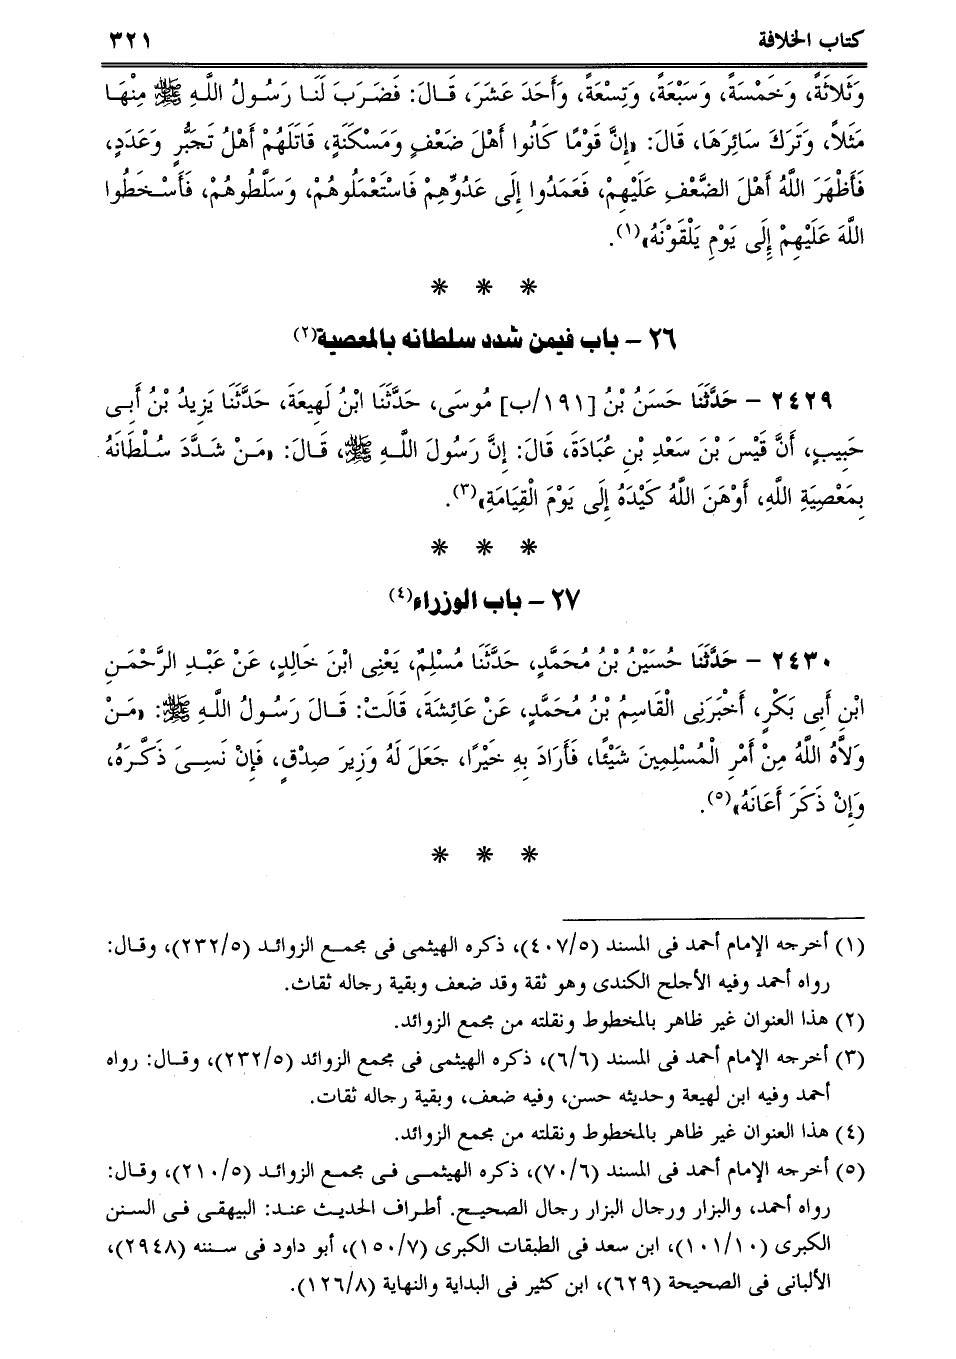 كتاب الخلافة ٣٢١
وَثَلاثَةً، وَخَمْسَةً، وَسَبْعَةً، وَتِسْعَةً، وَأَحَدَ عَشَرَ، قَالَ: فَضَرَبَ لَنَا رَسُولُ اللَّهِ ﷺ مِنْهَا
مَثَلاً، وَتَرَكَ سَائِرَهَا، قَالَ: «إِنَّ قَوْمًا كَانُوا أَهْلَ ضَعْفٍ وَمَسْكَنَةٍ، قَاتَلَهُمْ أَهْلُ تَجَبُّرٍ وَعَدَدٍ،
فَأَظْهَرَ اللَّهُ أَهْلَ الضَّعْفِ عَلَيْهِمْ، فَعَمَدُوا إِلَى عَدُوِّهِمْ فَاسْتَعْمَلُوهُمْ، وَسَلَّطُوهُمْ، فَأَسْخَطُوا
اللَّهَ عَلَيْهِمْ إِلَى يَوْمِ يَلْقَوْنَهُ»(١).
* * *
٢٦ – باب فيمن شدد سلطانه بالمعصية(٢)
٢٤٢٩ – حَدَّثَنَا حَسَنُ بْنُ [١٩١/ب] مُوسَى، حَدَّثَنَا ابْنُ لَهِيعَةَ، حَدَّثَنَا يَزِيدُ بْنُ أَبِى
حَبِيبٍ، أَنَّ قَيْسَ بْنَ سَعْدِ بْنِ عُبَادَةَ، قَالَ: إِنَّ رَسُولَ اللَّهِ ﷺ، قَالَ: «مَنْ شَدَّدَ سُلْطَانَهُ
بِمَعْصِيَةِ اللَّهِ، أَوْهَنَ اللَّهُ كَيْدَهُ إِلَى يَوْمَ الْقِيَامَةِ»(٣).
* * *
٢٧ – باب الوزراء(٤)
٢٤٣٠ – حَدَّثَنَا حُسَيْنُ بْنُ مُحَمَّدٍ، حَدَّثَنَا مُسْلِمٌ، يَعْنِى ابْنَ خَالِدٍ، عَنْ عَبْدِ الرَّحْمَنِ
ابْنِ أَبِى بَكْرٍ، أَخْبَرَنِى الْقَاسِمُ بْنُ مُحَمَّدٍ، عَنْ عَائِشَةَ، قَالَتْ: قَالَ رَسُولُ اللَّهِ ﷺ: «مَنْ
وَلاَّهُ اللَّهُ مِنْ أَمْرِ الْمُسْلِمِينَ شَيْئًا، فَأَرَادَ بِهِ خَيْرًا، جَعَلَ لَهُ وَزِيرَ صِدْقٍ، فَإِنْ نَسِىَ ذَكَّرَهُ،
وَإِنْ ذَكَرَ أَعَانَهُ»(٥).
* * *
(١) أخرجه الإمام أحمد فى المسند (٤٠٧/٥)، ذكره الهيثمى فى مجمع الزوائد (٢٣٢/٥)، وقال:
رواه أحمد وفيه الأجلح الكندى وهو ثقة وقد ضعف وبقية رجاله ثقاث.
(٢) هذا العنوان غير ظاهر بالمخطوط ونقلته من مجمع الزوائد.
(٣) أخرجه الإمام أحمد فى المسند (٦/٦)، ذكره الهيثمى فى مجمع الزوائد (٢٣٢/٥)، وقال: رواه
أحمد وفيه ابن لهيعة وحديثه حسن، وفيه ضعف، وبقية رجاله ثقات.
(٤) هذا العنوان غير ظاهر بالمخطوط ونقلته من مجمع الزوائد.
(٥) أخرجه الإمام أحمد فى المسند (٧٠/٦)، ذكره الهيثمى فى مجمع الزوائد (٢١٠/٥)، وقال:
رواه أحمد، والبزار ورجال البزار رجال الصحيح. أطراف الحديث عند: البيهقى فى السنن
الكبرى (١٠١/١٠)، ابن سعد فى الطبقات الكبرى (١٥٠/٧)، أبو داود فى سننه (٢٩٤٨)،
الألبانى فى الصحيحة (٦٢٩)، ابن كثير فى البداية والنهاية (١٢٦/٨).